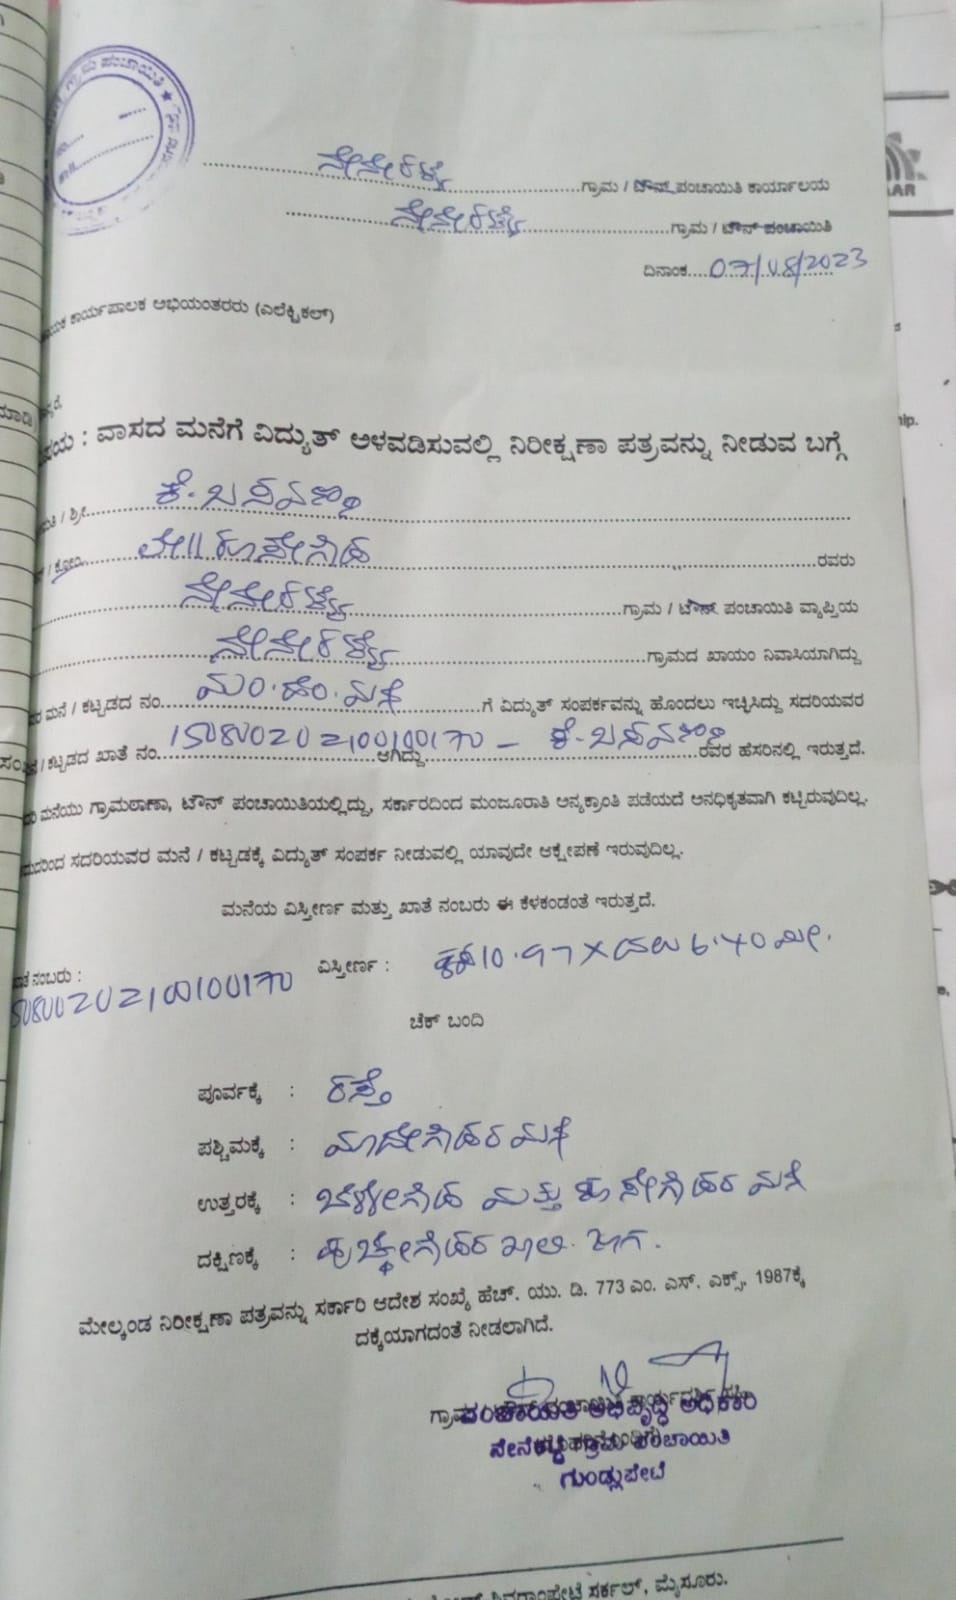 ಗ್ರಾಮ ಪಂಚಾಯಿತಿ ★
ನೇನೇಕಟ್ಟೆ ಗ್ರಾಮ / ಟೌನ್ ಪಂಚಾಯಿತಿ ಕಾರ್ಯಾಲಯ
ನೇನೇಕಟ್ಟೆ ಗ್ರಾಮ / ಟೌನ್ ಪಂಚಾಯಿತಿ
ದಿನಾಂಕ 07/08/2023
ಕಾರ್ಯಪಾಲಕ ಅಭಿಯಂತರರು (ಎಲೆಕ್ಟ್ರಿಕಲ್)
: ವಾಸದ ಮನೆಗೆ ವಿದ್ಯುತ್ ಅಳವಡಿಸುವಲ್ಲಿ ನಿರೀಕ್ಷಣಾ ಪತ್ರವನ್ನು ನೀಡುವ ಬಗ್ಗೆ
/ ಶ್ರೀ ಕೆ.ಬಸವಣ್ಣ
/ ಕೋಂ ಲೇ|| ಕೂಸೇಗೌಡ ರವರು
ನೇನೇಕಟ್ಟೆ ಗ್ರಾಮ / ಟೌನ್ ಪಂಚಾಯಿತಿ ವ್ಯಾಪ್ತಿಯ
ನೇನೇಕಟ್ಟೆ ಗ್ರಾಮದ ಖಾಯಂ ನಿವಾಸಿಯಾಗಿದ್ದು
ಮನೆ / ಕಟ್ಟಡದ ನಂ. ಮಂ.ಹೆಂ.ಮನೆ ಗೆ ವಿದ್ಯುತ್ ಸಂಪರ್ಕವನ್ನು ಹೊಂದಲು ಇಚ್ಛಿಸಿದ್ದು ಸದರಿಯವರ
/ ಕಟ್ಟಡದ ಖಾತೆ ನಂ. 150800202100100170 – ಆಗಿದ್ದು ಕೆ.ಬಸವಣ್ಣ ರವರ ಹೆಸರಿನಲ್ಲಿ ಇರುತ್ತದೆ.
ಮನೆಯು ಗ್ರಾಮಠಾಣಾ, ಟೌನ್ ಪಂಚಾಯಿತಿಯಲ್ಲಿದ್ದು, ಸರ್ಕಾರದಿಂದ ಮಂಜೂರಾತಿ ಅನ್ಯಕ್ರಾಂತಿ ಪಡೆಯದೆ ಅನಧಿಕೃತವಾಗಿ ಕಟ್ಟಿರುವುದಿಲ್ಲ.
ಸದರಿಯವರ ಮನೆ / ಕಟ್ಟಡಕ್ಕೆ ವಿದ್ಯುತ್ ಸಂಪರ್ಕ ನೀಡುವಲ್ಲಿ ಯಾವುದೇ ಆಕ್ಷೇಪಣೆ ಇರುವುದಿಲ್ಲ.
ಮನೆಯ ವಿಸ್ತೀರ್ಣ ಮತ್ತು ಖಾತೆ ನಂಬರು ಈ ಕೆಳಕಂಡಂತೆ ಇರುತ್ತದೆ.
ನಂಬರು : ವಿಸ್ತೀರ್ಣ : 10.97 X 6.40 ಮೀ.
50800202100100170
ಚೆಕ್ ಬಂದಿ
ಪೂರ್ವಕ್ಕೆ : ರಸ್ತೆ
ಪಶ್ಚಿಮಕ್ಕೆ : ಮಾದೇಗೌಡರ ಮನೆ
ಉತ್ತರಕ್ಕೆ : ಬೆಳ್ಳೇಗೌಡ ಮತ್ತು ಕೂಸೇಗೌಡರ ಮನೆ
ದಕ್ಷಿಣಕ್ಕೆ : ಪುಟ್ಟೇಗೌಡರ ಖಾಲಿ ಜಾಗ.
ಮೇಲ್ಕಂಡ ನಿರೀಕ್ಷಣಾ ಪತ್ರವನ್ನು ಸರ್ಕಾರಿ ಆದೇಶ ಸಂಖ್ಯೆ ಹೆಚ್. ಯು. ಡಿ. 773 ಎಂ. ಎಸ್. ಎಕ್ಸ್. 1987ಕ್ಕೆ
ದಕ್ಕೆಯಾಗದಂತೆ ನೀಡಲಾಗಿದೆ.
ಪಂಚಾಯಿತಿ ಅಭಿವೃದ್ಧಿ ಅಧಿಕಾರಿ
ನೇನೆಕಟ್ಟೆ ಗ್ರಾಮ ಪಂಚಾಯಿತಿ
ಗುಂಡ್ಲುಪೇಟೆ
ಸರ್ಕಲ್, ಮೈಸೂರು.